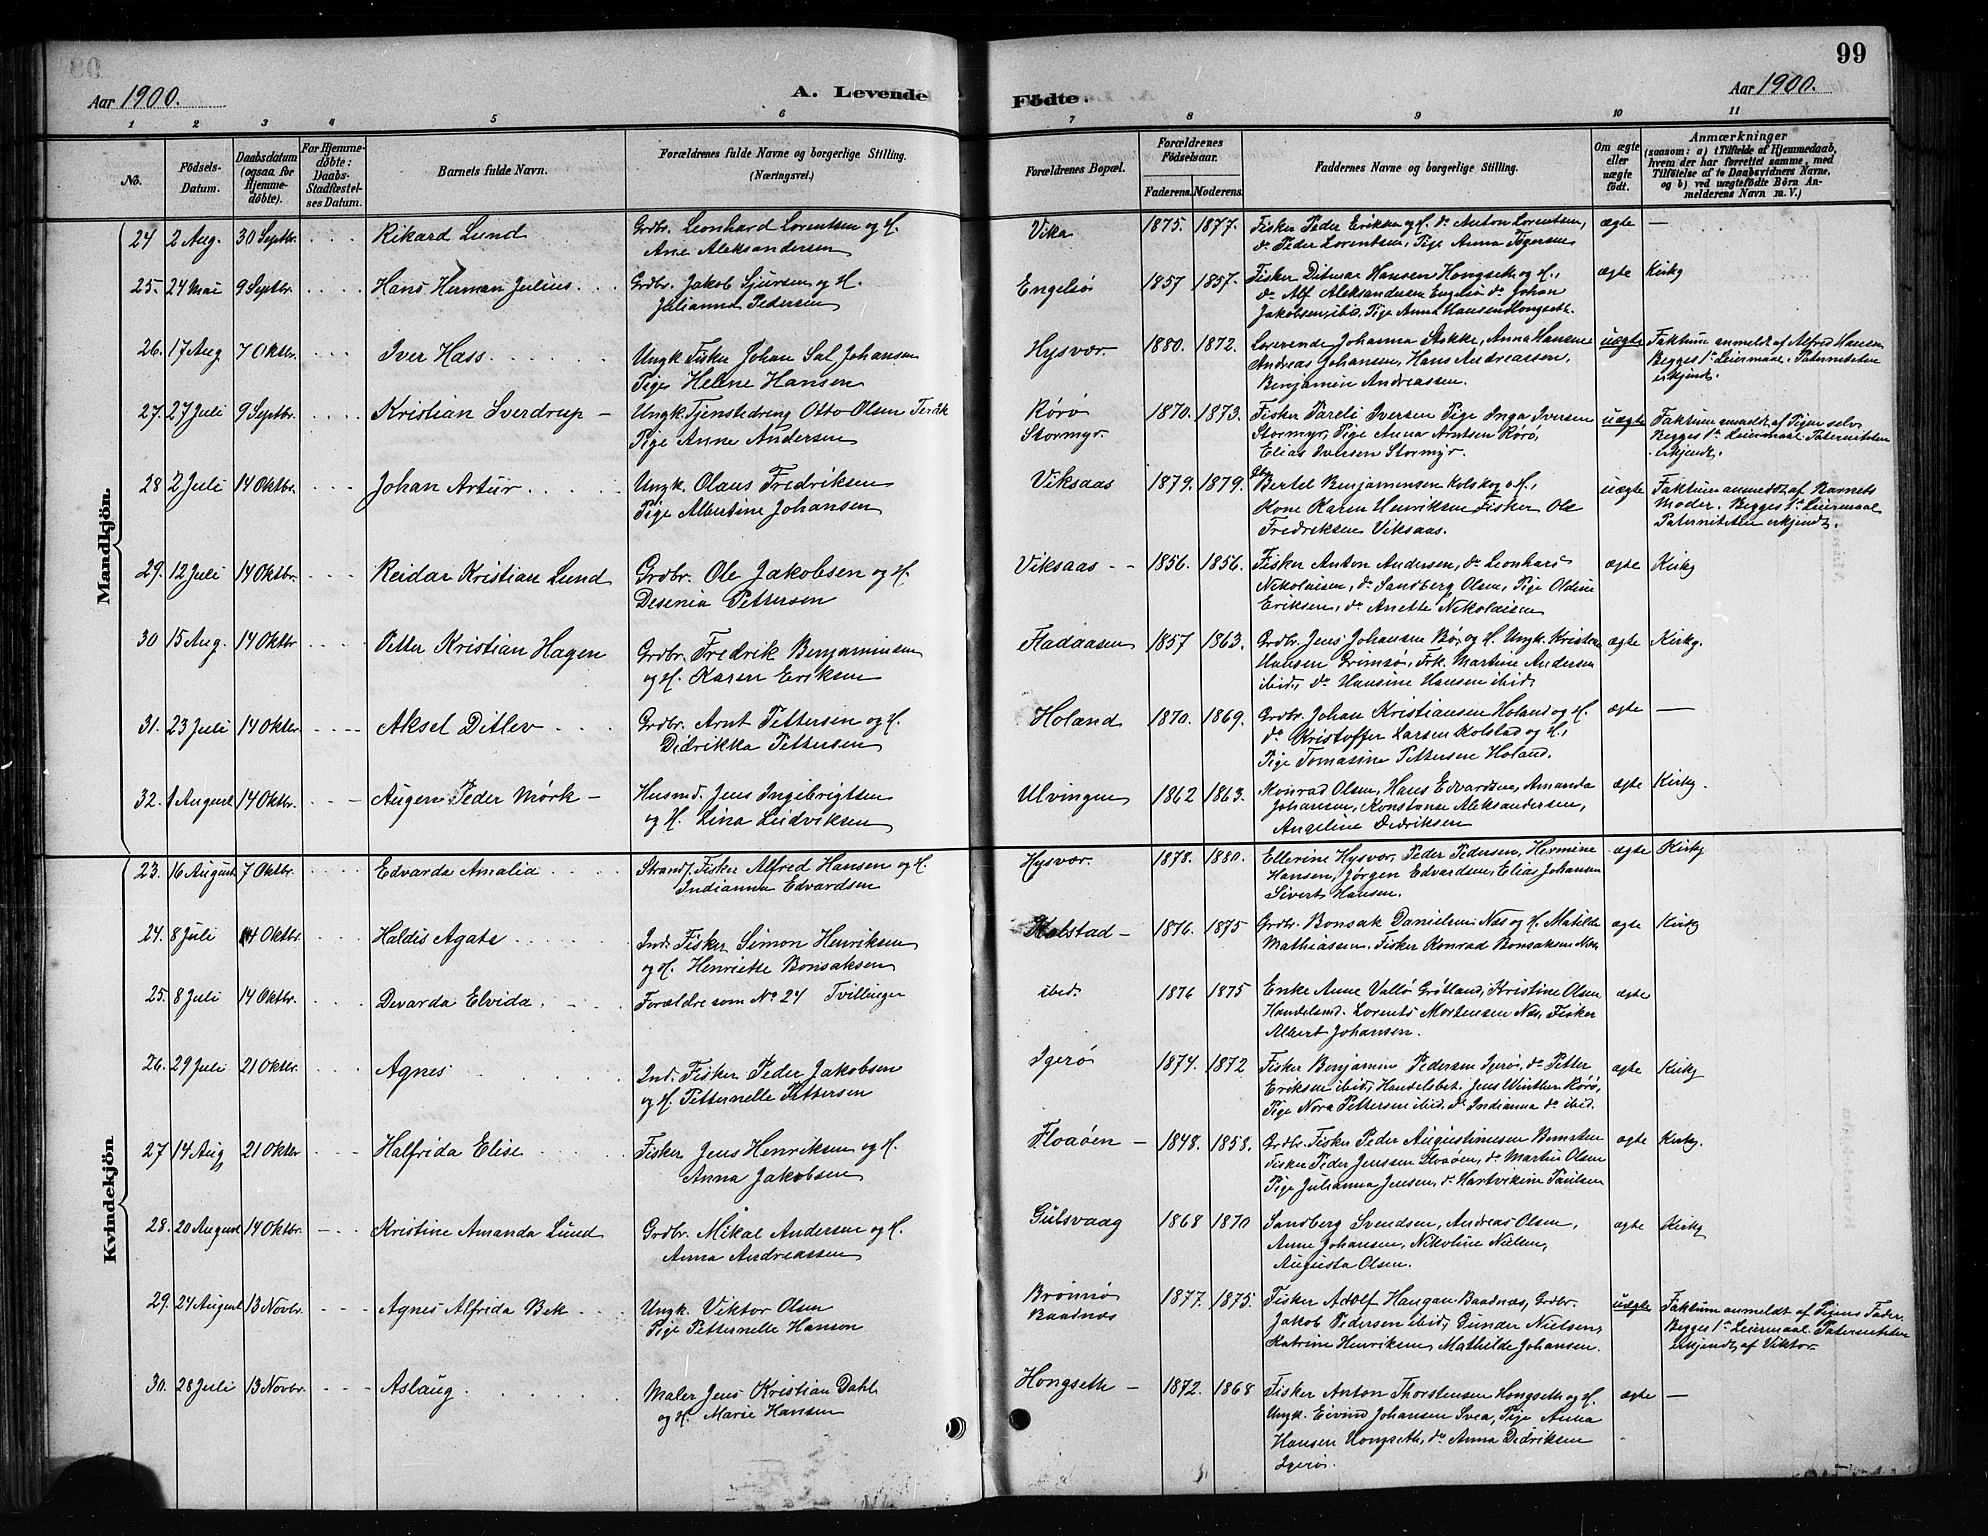 99
Aar 1900.
A. Levende Födte.
Aar 1900.
1 2 3 4 5 6 7 8 9 10 11
No.
Födsels-Datum.
Daabsdatum (ogsaa for Hjemmedöbte).
For Hjemmedöbte: Daabs-Stadfæstelses Datum.
Barnets fulde Navn.
Forældrenes fulde Navne og borgerlige Stilling. (Næringsvei.)
Forældrenes Bopæl.
Forældrenes Födselsaar.
Faderens. Moderens.
Faddernes Navne og borgerlige Stilling.
Om ægte eller uægte födt.
Anmærkninger
(saasom: a) i Tilfælde af Hjemmedaab, hvem der har forrettet samme, med Tilföielse af to Daabsvidners Navne, og b) ved uægtefödte Börn Anmelderens Navn m. V.)
Mandkjön.
24 2 Aug. 30 Septbr. Rikard Lund Grdbr. Leonhard Lorentsen og H. Vika 1875. 1877. Fisker Peder Eriksen og H. do Anton Lorentsen, ægte —
Ane Aleksandersen do Peder Lorentsen, Pige Anna
25. 24 Mai 9 Septbr. Hans Herman Julius Grdbr. Jakob Sjursen og H. Engelsö 1857 1857. Fisker Ditmar Hansen Hongseth og H., ægte Kirkg
Julianna Pedersen do Alf Aleksandersen Engelsö do Johan
Jakobsen, ibid, Pige Anna Hansen Hongseth.
26. 17 Aug 7 Oktbr. Iver Hass Ungk Fisker Johan Sal. Johansen Hysvær. 1880. 1872. Johanna Stokke, Anna Hansen uægte Faktum anmeldt af Alfred Hansen
Pige Helene Hansen Andreas Johansen, Hans Andreassen, Begges 1ste Leiermaal. Paterniteten
Benjamin Andreassen. erkjendt.
27. 27 Juli 9 Septbr. Kristian Sverdrup — Ungk. Tjenstedreng Otto Olsen Rörö 1870. 1873. Fisker Pareli Iversen Pige Inga Iversen uægte Faktum anmeldt af Pigen selv
Pige Anne Andersen Stormyr. Stormyr, Pige Anna Arntsen Rörö, Begges 1ste Leiermaal. Paterniteten
Elias Iversen Stormyr. erkjendt.
28 2 Juli 14 Oktbr. Johan Artur Ungk. Olaus Fredriksen Viksaas 1879. 1879. Bertel Benjaminsen Kolskog o H., uægte Faktum anmeldt af Barnets
Pige Albertine Johansen Kone Karen Henriksen Fisker Ole Moder. Begges 1ste Leiermaal
Fredriksen Viksaas. Paterniteten erkjendt.
29. 12 Juli 14 Oktbr. Reidar Kristian Lund Grdbr. Ole Jakobsen og H. Viksaas - - 1856. 1856. Fisker Anton Andersen, do Leonhard ægte Kirkg
Desenia Pettersen Nikolaisen, do Sandberg Olsen, Pige Oldine
Eriksen, do Anette Nikolaisen
30 15 Aug. 14 Oktbr Petter Kristian Hagen Grdbr. Fredrik Benjaminsen Fladaasen 1857 1863. Grdbr. Jens Johansen Bö, og H. Ungk. Kristen ægte Kirkg.
og H. Karen Eriksen Hansen Grimsö, Frk. Martine Andersen
ibid, do Hansine Hansen ibid.
31. 23 Juli 14 Oktbr Aksel Ditlev Grdbr. Arnt Pettersen og H. Holand 1870. 1869. Grdbr. Johan Kristiansen Holand og H. ægte —
Didrikka Pettersen do Kristoffer Larsen Kolstad og H.,
Pige Tomasine Pettersen Holand.
32. 1 August 14 Oktbr. Augen Peder Mörk — Husmd. Jens Ingebrigtsen Ulvingen 1862 1863. Konrad Olsen, Hans Edvardsen, Amanda ægte Kirkg.
og H. Lina Ludviksen Johansen, Konstanse Aleksandersen,
Angeline Didriksen
Kvindekjön.
23. 16 August 7 Oktbr. Edvarda Amalia Strands. Fisker Alfred Hansen og H. Hysvær. 1878. 1880. Ellerine Hysvær, Peder Pedersen, Hermine ægte Kirkg
Indianna Edvardsen Hansen, Jörgen Edvardsen, Elias Johansen
Sivert Hansen.
24. 8 Juli 14 Oktbr. Haldis Agate Ind. Fisker Simon Henriksen Kolstad — 1876. 1875 Grdbr. Bonsak Danielsen Nes og H. Matilde ægte Kirkg
og H. Henriette Bonsaksen Mathiassen. Fisker Konrad Bonsaksen Nes
25. 8 Juli 14 Oktbr. Devarda Elvida Forældre som No 24 Tvillinger ibid. 1876 1875 Enke Anne Vallö Grötland, Kristine Olsen ægte
Lorents Mortensen Nes, Fisker
Albert Johansen.
26. 29 Juli 21 Oktbr. Agnes Ind. Fisker Peder Jakobsen Igerö 1874. 1872 Fisker Benjamin Pedersen Igerö, do Petter ægte Kirkg
og H. Petternelle Pettersen Eriksen ibid, Handelsbet. Jens Winther Rörö,
Pige Nora Pettersen ibid, do Indianna do ibid.
27 14 Aug 21 Oktbr Halfrida Elise Fisker Jens Henriksen og H. Floaöen — 1848. 1858. Grdbr. Fisker Peder Augustinusen ægte Kirkg.
Anna Jakobsen Fisker Peder Jenssen Floaöen, do Martin Olsen
Pige Julianna Jensen, do Hartvikine Paulsen
28. 20 August 14 Oktbr. Kristine Amanda Lund Grdbr. Mikal Andersen og H. Gulsvaag 1868 1870 Sandberg Svendsen, Andreas Olsen, ægte Kirkg
Anna Andreassen Anne Johansen, Nikoline Nielsen,
Augusta Olsen.
29. 24 August 13 Novbr. Agnes Alfrida Bek Ungk. Viktor Olsen Brönnö 1877. 1875. Fisker Adolf Haugan Baadnæs, Grdbr. uægte Faktum anmeldt af Pigens Fader.
Pige Petternelle Hanson Baadnæs Jakob Pedersen ibid, Gunder Nielsen, Begges 1ste Leiermaal. Paterniteten
Katrine Henriksen, Mathilde Johansen. erkjendt af Viktor.
30. 28 Juli 13 Novbr. Aslaug Maler Jens Kristian Dahl Hongseth — 1872. 1868 Fisker Anton Thorstensen Hongseth og H. ægte —
og H. Marie Hansen Ungk. Eivind Johansen Svea, Pige Anna
Hansen Hongseth, do Anna Didriksen
Igerö.